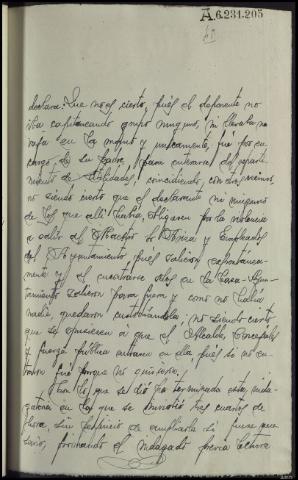 A.6.231.205
declara: Que no es cierto, pues el deponente no
iba capitaneando grupo ninguno, ni llevaba na-
vaja en la mano y unicamente, fué por en-
cargo de su padre, para enterarse del reparti-
miento de Utilidades, coincidiendo con otros vecinos,
no siendo cierto que el declarante ni ninguno
de los que allí había, obligaren por la violencia
a salir al Maestro de Música y Empleados
del Ayuntamiento, pues salieron espontanea-
mente y al encontrarse solos en la Casa-Ayun-
tamiento salieron para fuera y como no había
nadie, quedaron custodiándola, no siendo cierto
que se opusiesen a que el Alcalde, Concejales
y fuerza pública entraren en ella, pues si no en-
traron fué porque no quisieron.
Con lo que se dió por terminada esta inda-
gatoria en la que se invirtió tres cuartos de
hora, sin perjuicio de ampliarla si fuere nece-
sario, firmando el indagado previa lectura